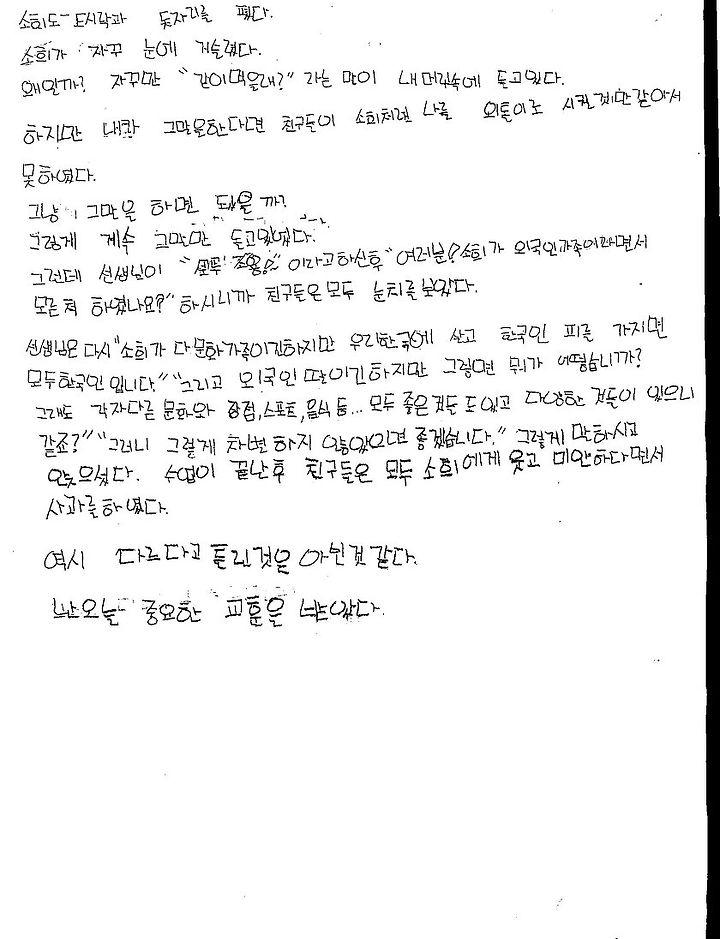 소희도 도시락과 돗자리를 폈다.
소희가 자꾸 눈에 거슬렸다.
왜인까? 자꾸만 "같이먹을래?" 라는 말이 내머릿속에 돌고있다.
하지만 내가 그말을한다면 친구들이 소희처럼 나를 외톨이로 시킬것만같아서
못하였다.
그냥 그말을 하면 됬을까?
그렇게 계속 그말만 돌고있었다.
그런데 선생님이 "모두 조용!" 이라고하신후 "여러분? 소희가 외국인가족이라면서
모른척 하였나요?" 하시니까 친구들은모두 눈치를보았다.
선생님은 다시 "소희가 다문화가족이긴하지만 우리한국에 살고 한국인 피를 가지면
모두한국인입니다." "그리고 외국인 딸이긴하지만 그렇면 뭐가 어떻습니까?
그래도 각자다른 문화와 장점,스포트,음식 등... 모두 좋은것듯 도있고 다양한 것들이 있으니
같죠?" "그러니 그렇게 차별하지 않았으면 좋겠습니다." 그렇게 말하시고
웃으셨다. 수업이 끝난후 친구들은 모두 소희에게 웃고 미안하다면서
사과를하였다.
역시 다르다고 틀린것은 아닌것 같다.
난오늘 중요한 교훈을 받았다.